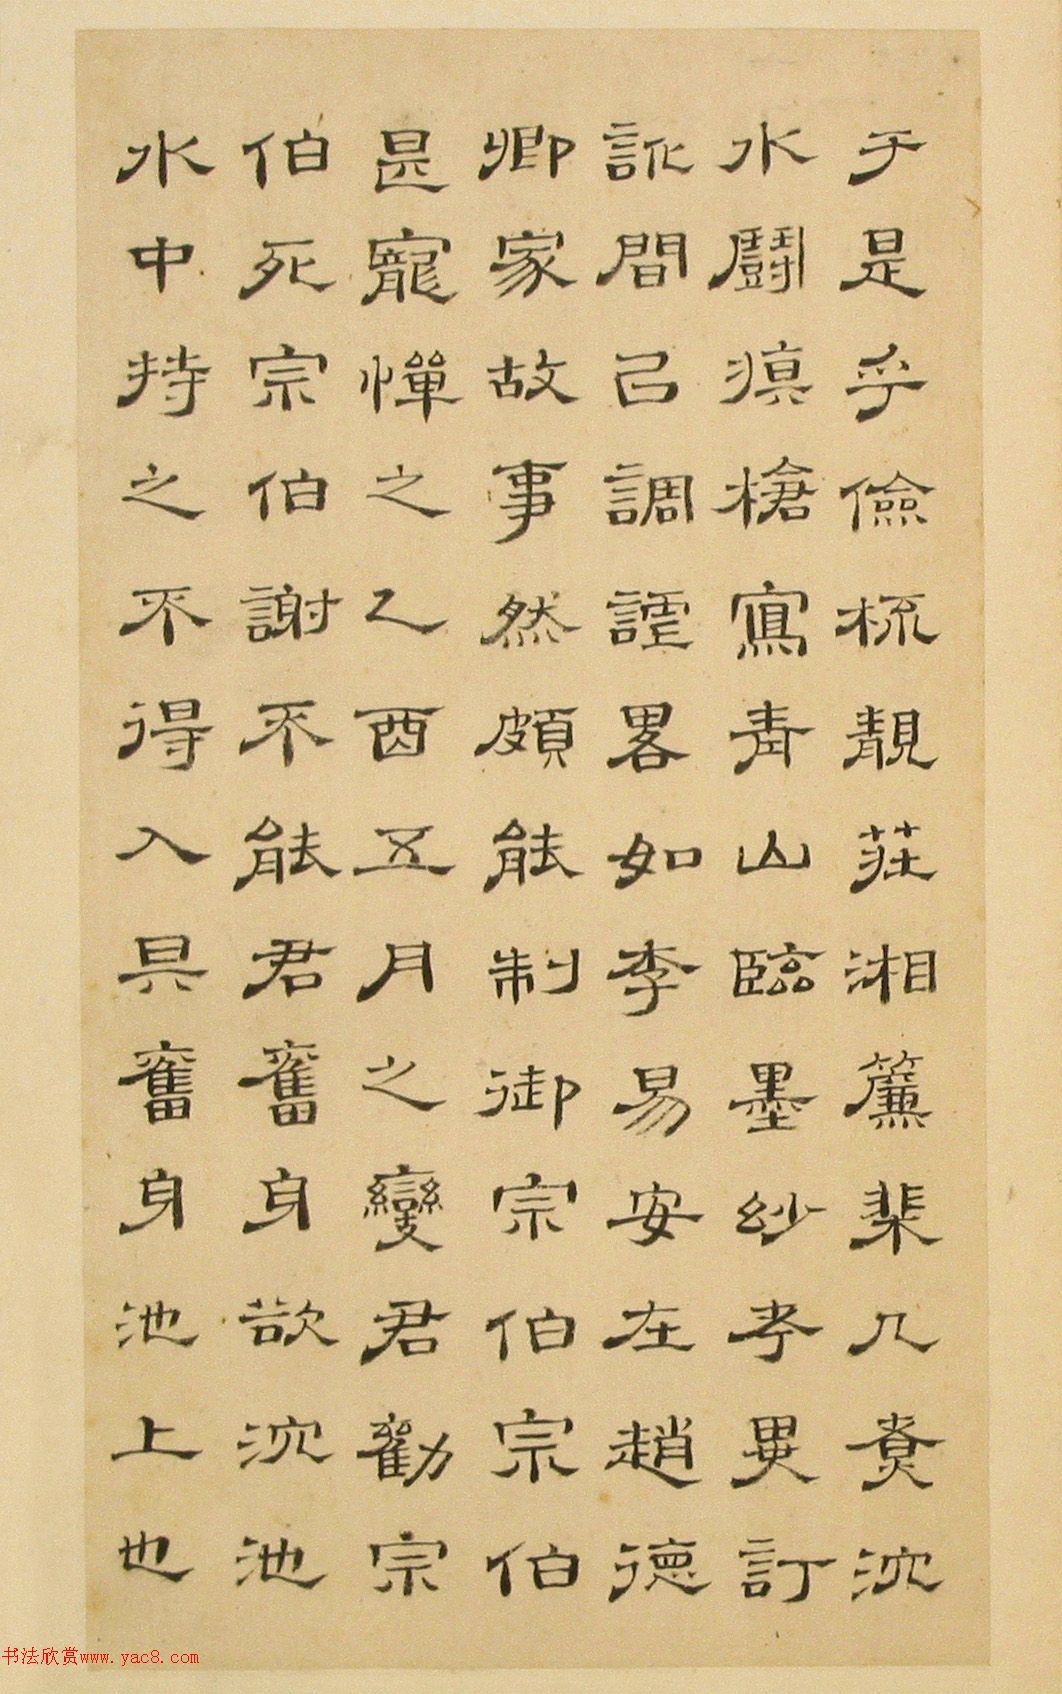 于是乎儉梳靚莊湘簾棐几煑沈
水鬬旗槍寫青山臨墨妙考異訂
訛間已調謔畧如李易安在趙德
卿家故事然頗能制御宗伯宗伯
甚寵憚之乙酉五月之變君勸宗
伯死宗伯謝不能君奮身欲沈池
水中持之不得入具奮身池上也
书法欣赏www.yac8.com